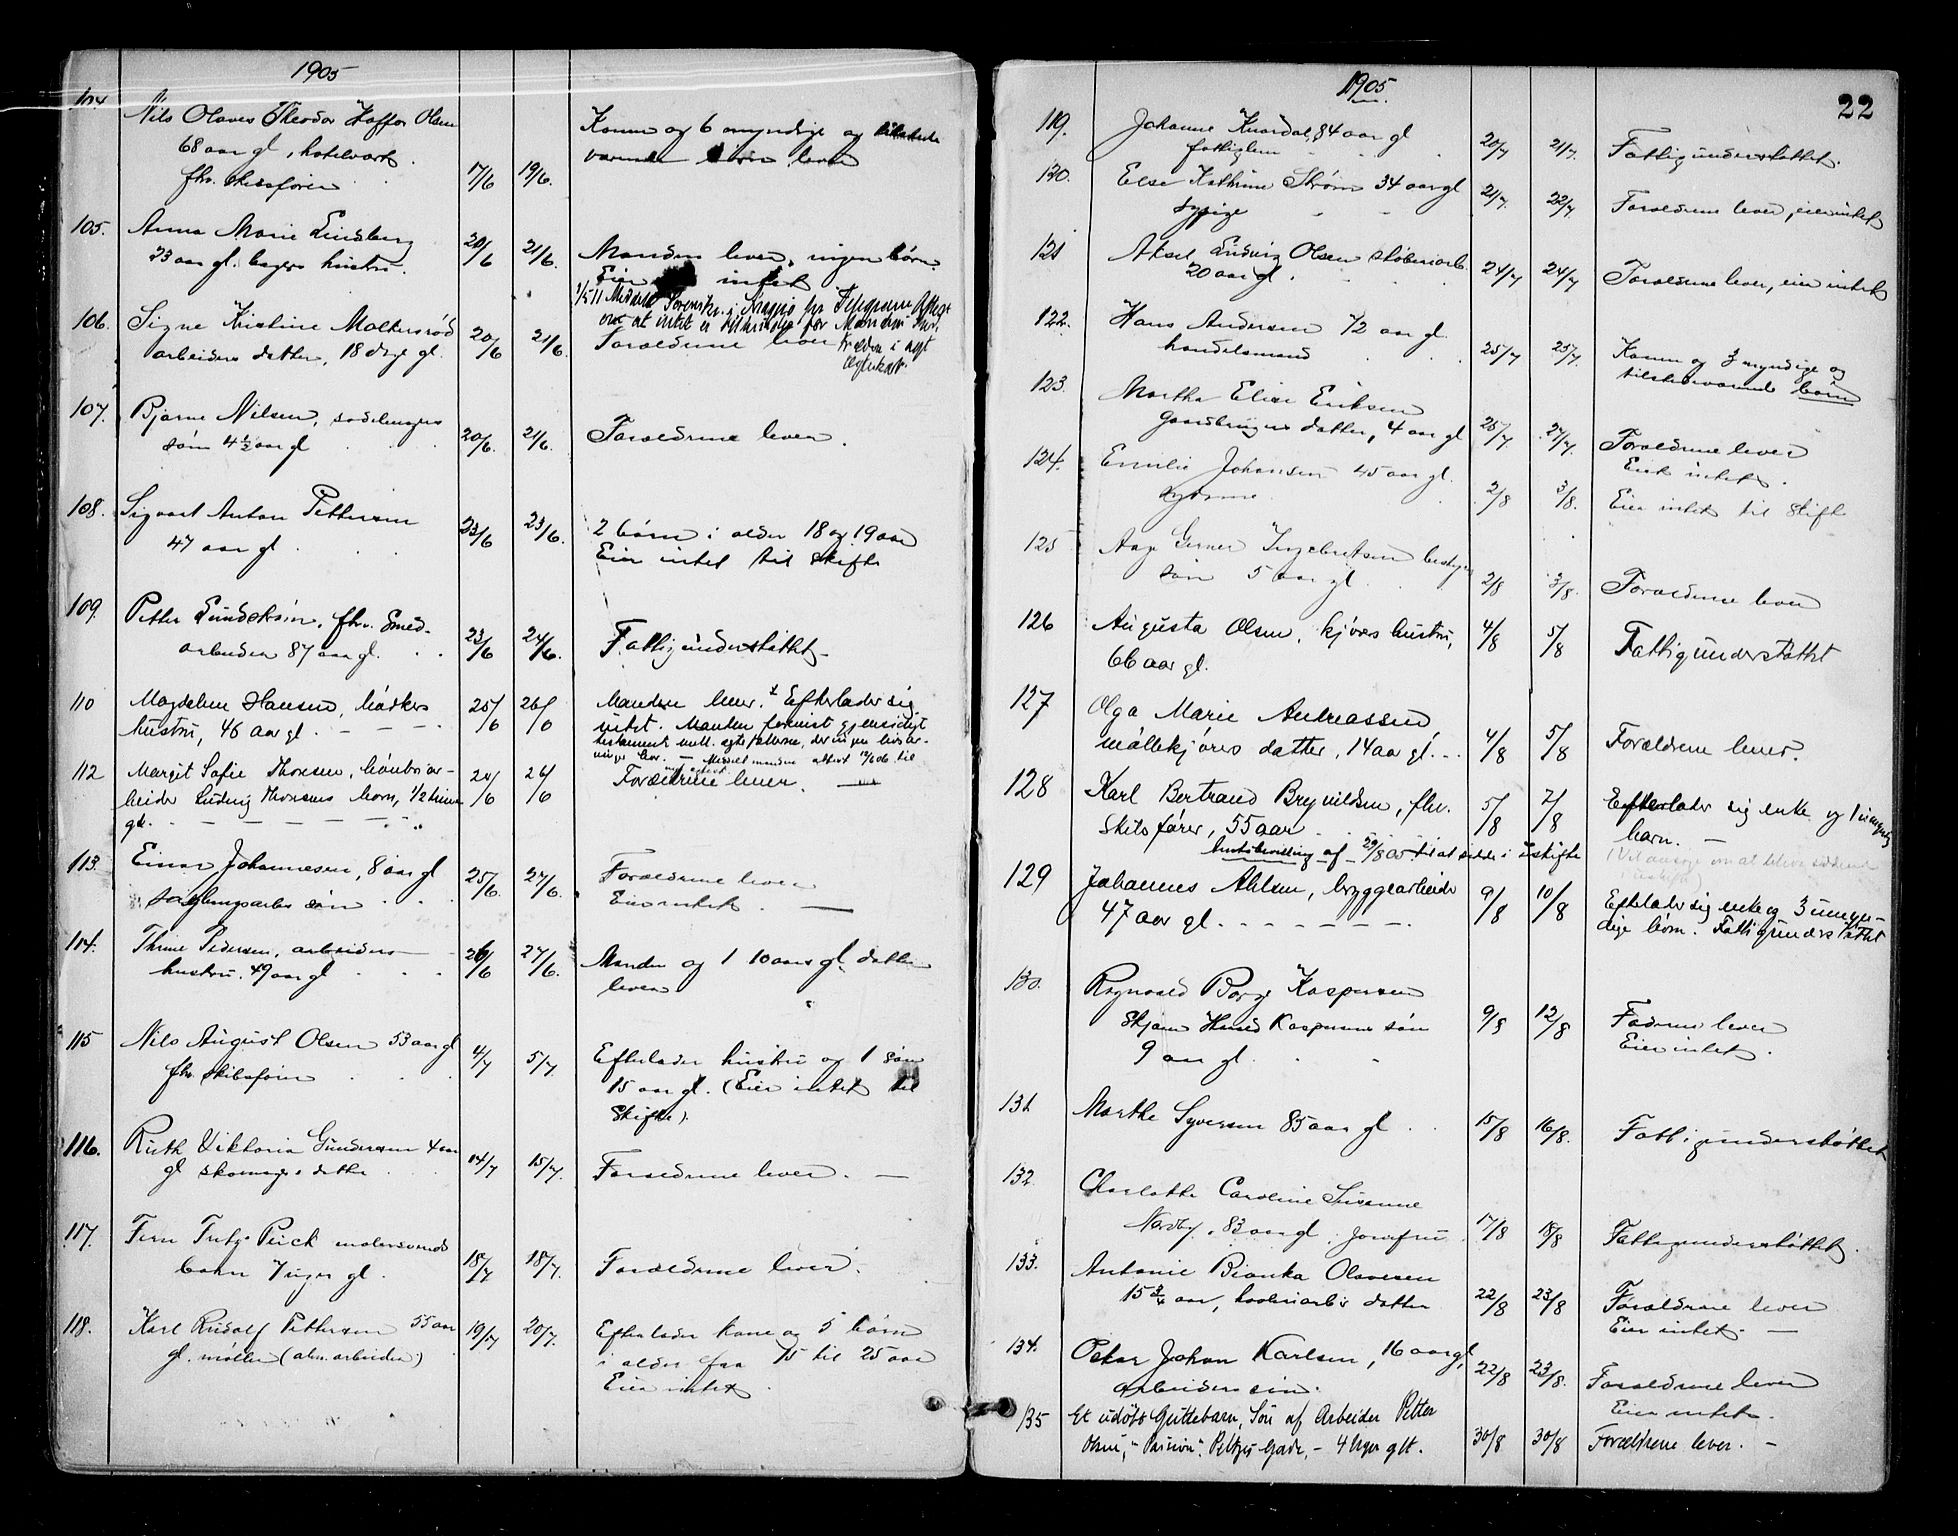 1905
104. Nils Olaves Theodor Olsen
68 aar gl, hotelvert
fhv. skibsfører 17/6 19/6. Kone og 6 myndige og
børn lever
105. Anna Marie Lindberg
23 aar gl. bagers hustru. 20/6 21/6. Manden lever, ingen børn.
Eier intet
om at intet er for Manden
106. Signe Kristine
arbeiders datter, 18 dage gl. 20/6 21/6. Forældrene lever
107. Bjarne Nilsen, sadelmagers
søn 4 1/2 aar gl 20/6. 21/6. Forældrene lever.
108. Sigvart Anton Pettersen
47 aar gl. 23/6 23/6. 2 børn i alder 18 og 19 aar
Eier intet til skifte
109. Petter fhv. Smed-
arbeider 87 aar gl. 23/6 24/6. Fattigunderstøttet
110 Magdalene Hansen, bødkers
hustru, 46 aar gl. 25/6 26/6 Manden lever. Efterlader sig
intet. Manden gjensidigt
testament mell. ægtefællerne, der ingen
112 Margit Sofie Thoresen,
beider Ludvig Thoresens barn, 1/2 time
gl. 24/6 26/6 Forældrene lever.
113. Einar Johannesen, 8 aar gl
søn 25/6. 27/6. Forældrene lever
Eier intet.
114. Thrine Pedersen, arbeiders
hustru. 49 aar gl 26/6 27/6. Manden og 1 10 aars gl. datter
lever
115 Nils August Olsen 53 aar gl
fhv. skibsfører 4/7 5/7. Efterlader hustru og 1 søn
15 aar gl. (Eier intet til
Skifte).
116. Ruth Viktoria Gundersen 4 aar
gl skomagers datter 14/7 15/7. Forældrene lever.
117. Fritz Peick malersvends
barn 7 uger gl. 18/7 18/7. Forældrene lever.
118. Karl Rudolf Pettersen 55 aar
gl. møller (alm. arbeider) 19/7 20/7. Efterlader kone og 5 børn
i alder fra 15 til 25 aar
Eier intet.
1905.
22
119. Johanne 84 aar gl
fattiglem 20/7 21/7. Fattigunderstøttet.
120. Else Kathrine Strøm 34 aar gl
sypige 21/7. 22/7. Forældrene lever, eier intet
121 Aksel Ludvig Olsen støberiarb.
20 aar gl. 24/7 24/7 Forældrene lever, eier intet
122. Hans Andersen 72 aar gl.
handelsmand 25/7 25/7. Kone og 3 myndige og
tilstedeværende børn
123. Martha Elise Eriksen
gaardbrugers datter, 4 aar gl 25/7 27/7. Forældrene lever
Eier intet.
124. Emilie Johansen 45 aar gl.
2/8 3/8. Eier intet til skifte
125 Aage Gerner Ingebretsen
søn 5 aar gl. 2/8 3/8. Forældrene lever
126 Augusta Olsen, kjørers hustru,
66 aar gl. 4/8 5/8 Fattigunderstøttet
127 Olga Marie Andreassen
møllekjørers datter, 14 aar gl. 4/8 5/8 Forældrene lever.
128 Karl Bertrand Brynildsen, fhv.
Skibsfører, 55 aar 5/8 7/8 Efterlader sig enke og 1 umyndig
barn.
af 29/8 05 til at sidde i uskifte
129 Johannes Ahlsen, bryggearbeider
47 aar gl. 9/8 10/8 Efterlader sig enke og 3 umyn-
dige børn. Fattigunderstøttet
130. Ragnvald Borge Kaspersen
Kaspersens søn
9 aar gl. 9/8 12/8 Faderen lever
Eier intet.
131 Marthe Syversen 85 aar gl. 15/8 16/8. Fattigunderstøttet
132 Charlotte Caroline Susanne
Nordby, 83 aar gl. jomfru 17/8 18/8 Fattigunderstøttet.
133. Antonie Bianka Olavesen
15 3/4 aar, datter 22/8 23/8 Forældrene lever
Eier intet.
134. Oskar Johan Karlsen, 16 aar gl,
arbeiders søn. 22/8 23/8. Forældrene lever
Eier intet.
135 Et udøbt Guttebarn, Søn af Arbeider Petter
Gade, - 4 Uger glt. 30/8 30/8 Forældrene lever. -